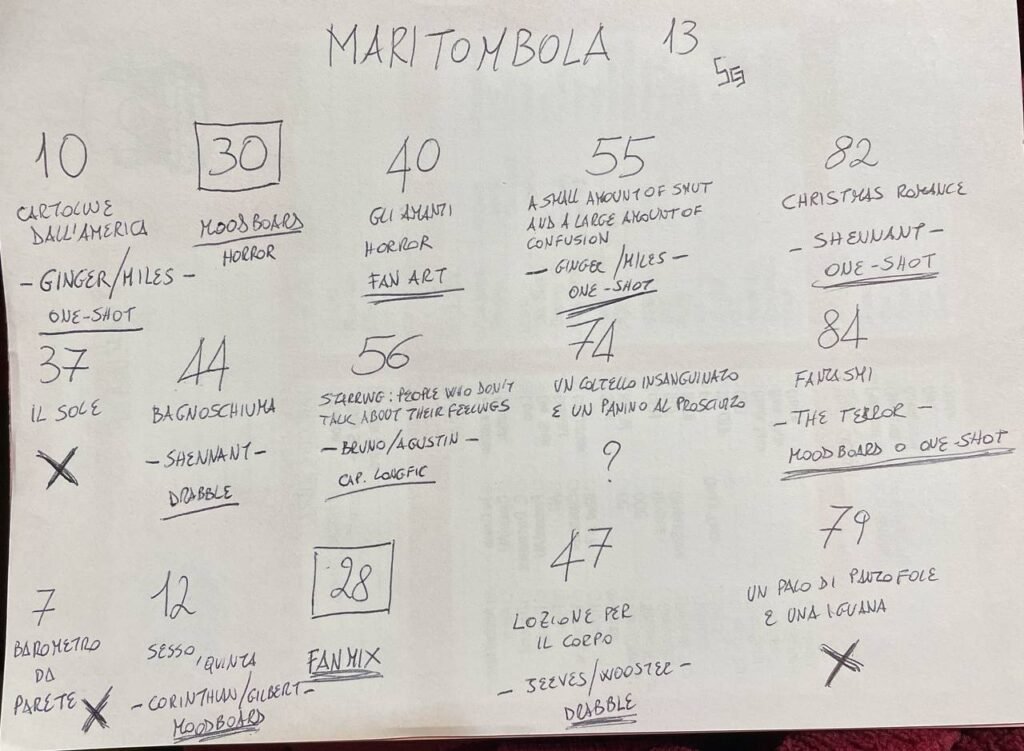 MARITOMBOLA 13
SG
10
CARTOLINE
DALL'AMERICA
- GINGER/MILES -
ONE-SHOT
30
MOODBOARD
HORROR
40
GLI AMANTI
HORROR
FAN ART
55
A SMALL AMOUNT OF SMUT
AND A LARGE AMOUNT OF
CONFUSION
- GINGER/MILES -
ONE-SHOT
82
CHRISTMAS ROMANCE
- SHENNANT -
ONE-SHOT
37
IL SOLE
X
44
BAGNOSCHIUMA
- SHENNANT -
DRABBLE
56
STARRING: PEOPLE WHO DON'T
TALK ABOUT THEIR FEELINGS
- BRUNO/AGUSTIN -
CAP. LONGFIC
74
UN COLTELLO INSANGUINATO
E UN PANINO AL PROSCIUTTO
?
84
FANTASMI
- THE TERROR -
MOODBOARD O ONE-SHOT
7
BAROMETRO
DA
PARETE X
12
SESSO
QUINTA
- CORINTHIAN/GILBERT -
MOODBOARD
28
FANMIX
47
LOZIONE PER
IL CORPO
- JEEVES/WOOSTER -
DRABBLE
79
UN PAIO DI PANTOFOLE
E UNA IGUANA
X